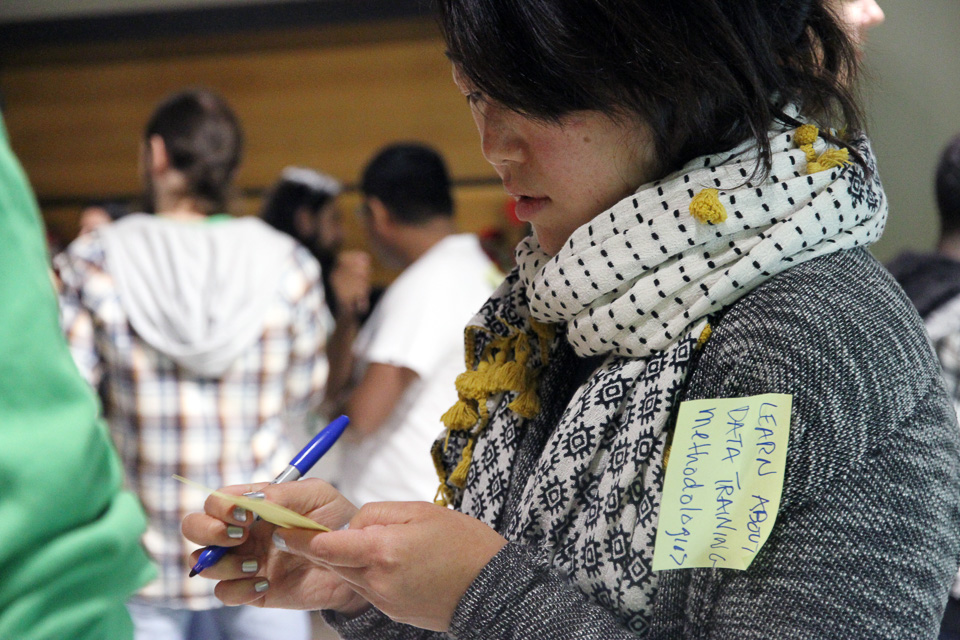 LEARN ABOUT
DATA TRAINING
methodologies